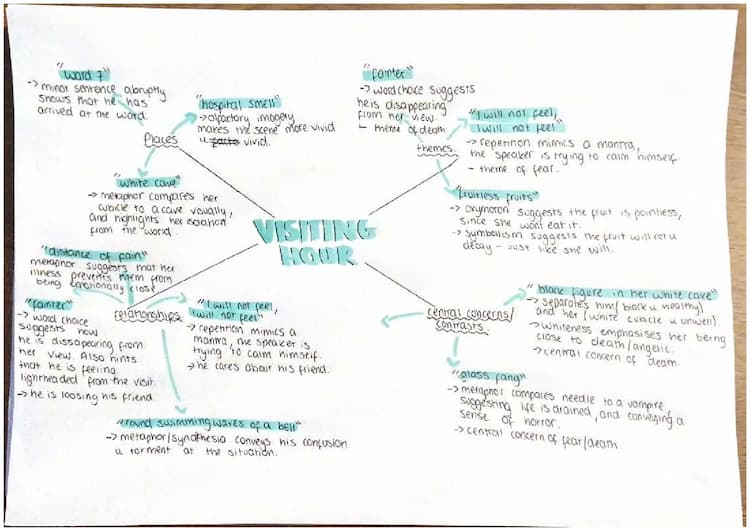 "ward 7"
→ minor sentence abruptly
shows that he has
arrived at the ward.
"hospital smell"
→ olfactory imagery
makes the scene more vivid
vivid.
Places
"white cave"
→ metaphor compares her
cubicle to a cave visually,
and highlights her isolation
from the world.
"fainter"
→ word choice suggests
he is disappearing
from her view.
- theme of death
"I will not feel,
I will not feel"
→ repetition mimics a mantra,
the speaker is trying to calm himself.
- theme of fear.
themes.
"fruitless fruits"
→ oxymoron suggests the fruit is pointless,
since she wont eat it.
→ symbolism suggests the fruit will rot u
decay - just like she will.
VISITING
HOUR
"distance of pain"
metaphor suggests that her
illness prevents them from
being emotionally close
"fainter"
→ word choice
suggests how
he is dissapearing from
her view. Also hints
that he is feeling
lightheaded from the visit.
→ he is loosing his friend.
relationships
"I will not feel,
I will not feel"
→ repetition mimics a
mantra, the speaker is
trying to calm himself.
→ he cares about his friend.
"round swimming waves of a bell"
→ metaphor/synathesia conveys his confusion
u torment at the situation.
central concerns/
contrasts.
"black figure in her white cave"
→ separates him (black u healthy)
and her (white cubicle u unwell).
→ whiteness emphasises her being
close to death/angelic.
→ central concern of death.
"glass fang"
→ metaphor compares needle to a vampire,
suggesting life is drained, and conveying a
sense of horror.
→ central concern of fear/death